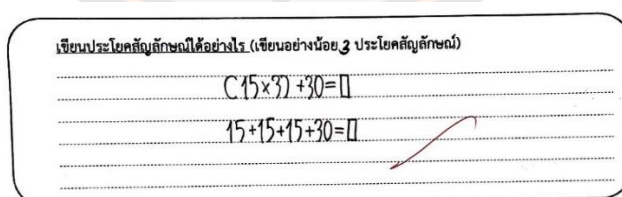 เขียนประโยคสัญลักษณ์ได้อย่างไร (เขียนอย่างน้อย 2 ประโยคสัญลักษณ์)
(15×3) +30=▯
15+15+15+30=▯